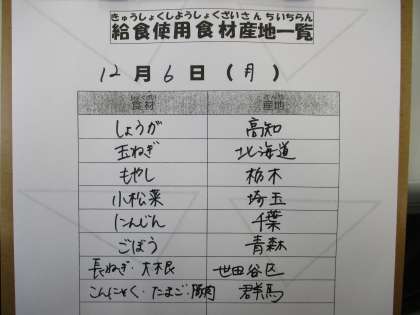 きゅうしょくしようしょくざいさんちいちらん
給食使用食材産地一覧
12月6日(月)
食材 産地
しょうが 高知
玉ねぎ 北海道
もやし 栃木
小松菜 埼玉
にんじん 千葉
ごぼう 青森
長ねぎ・大根 世田谷区
こんにゃく・たまご・豚肉 群馬